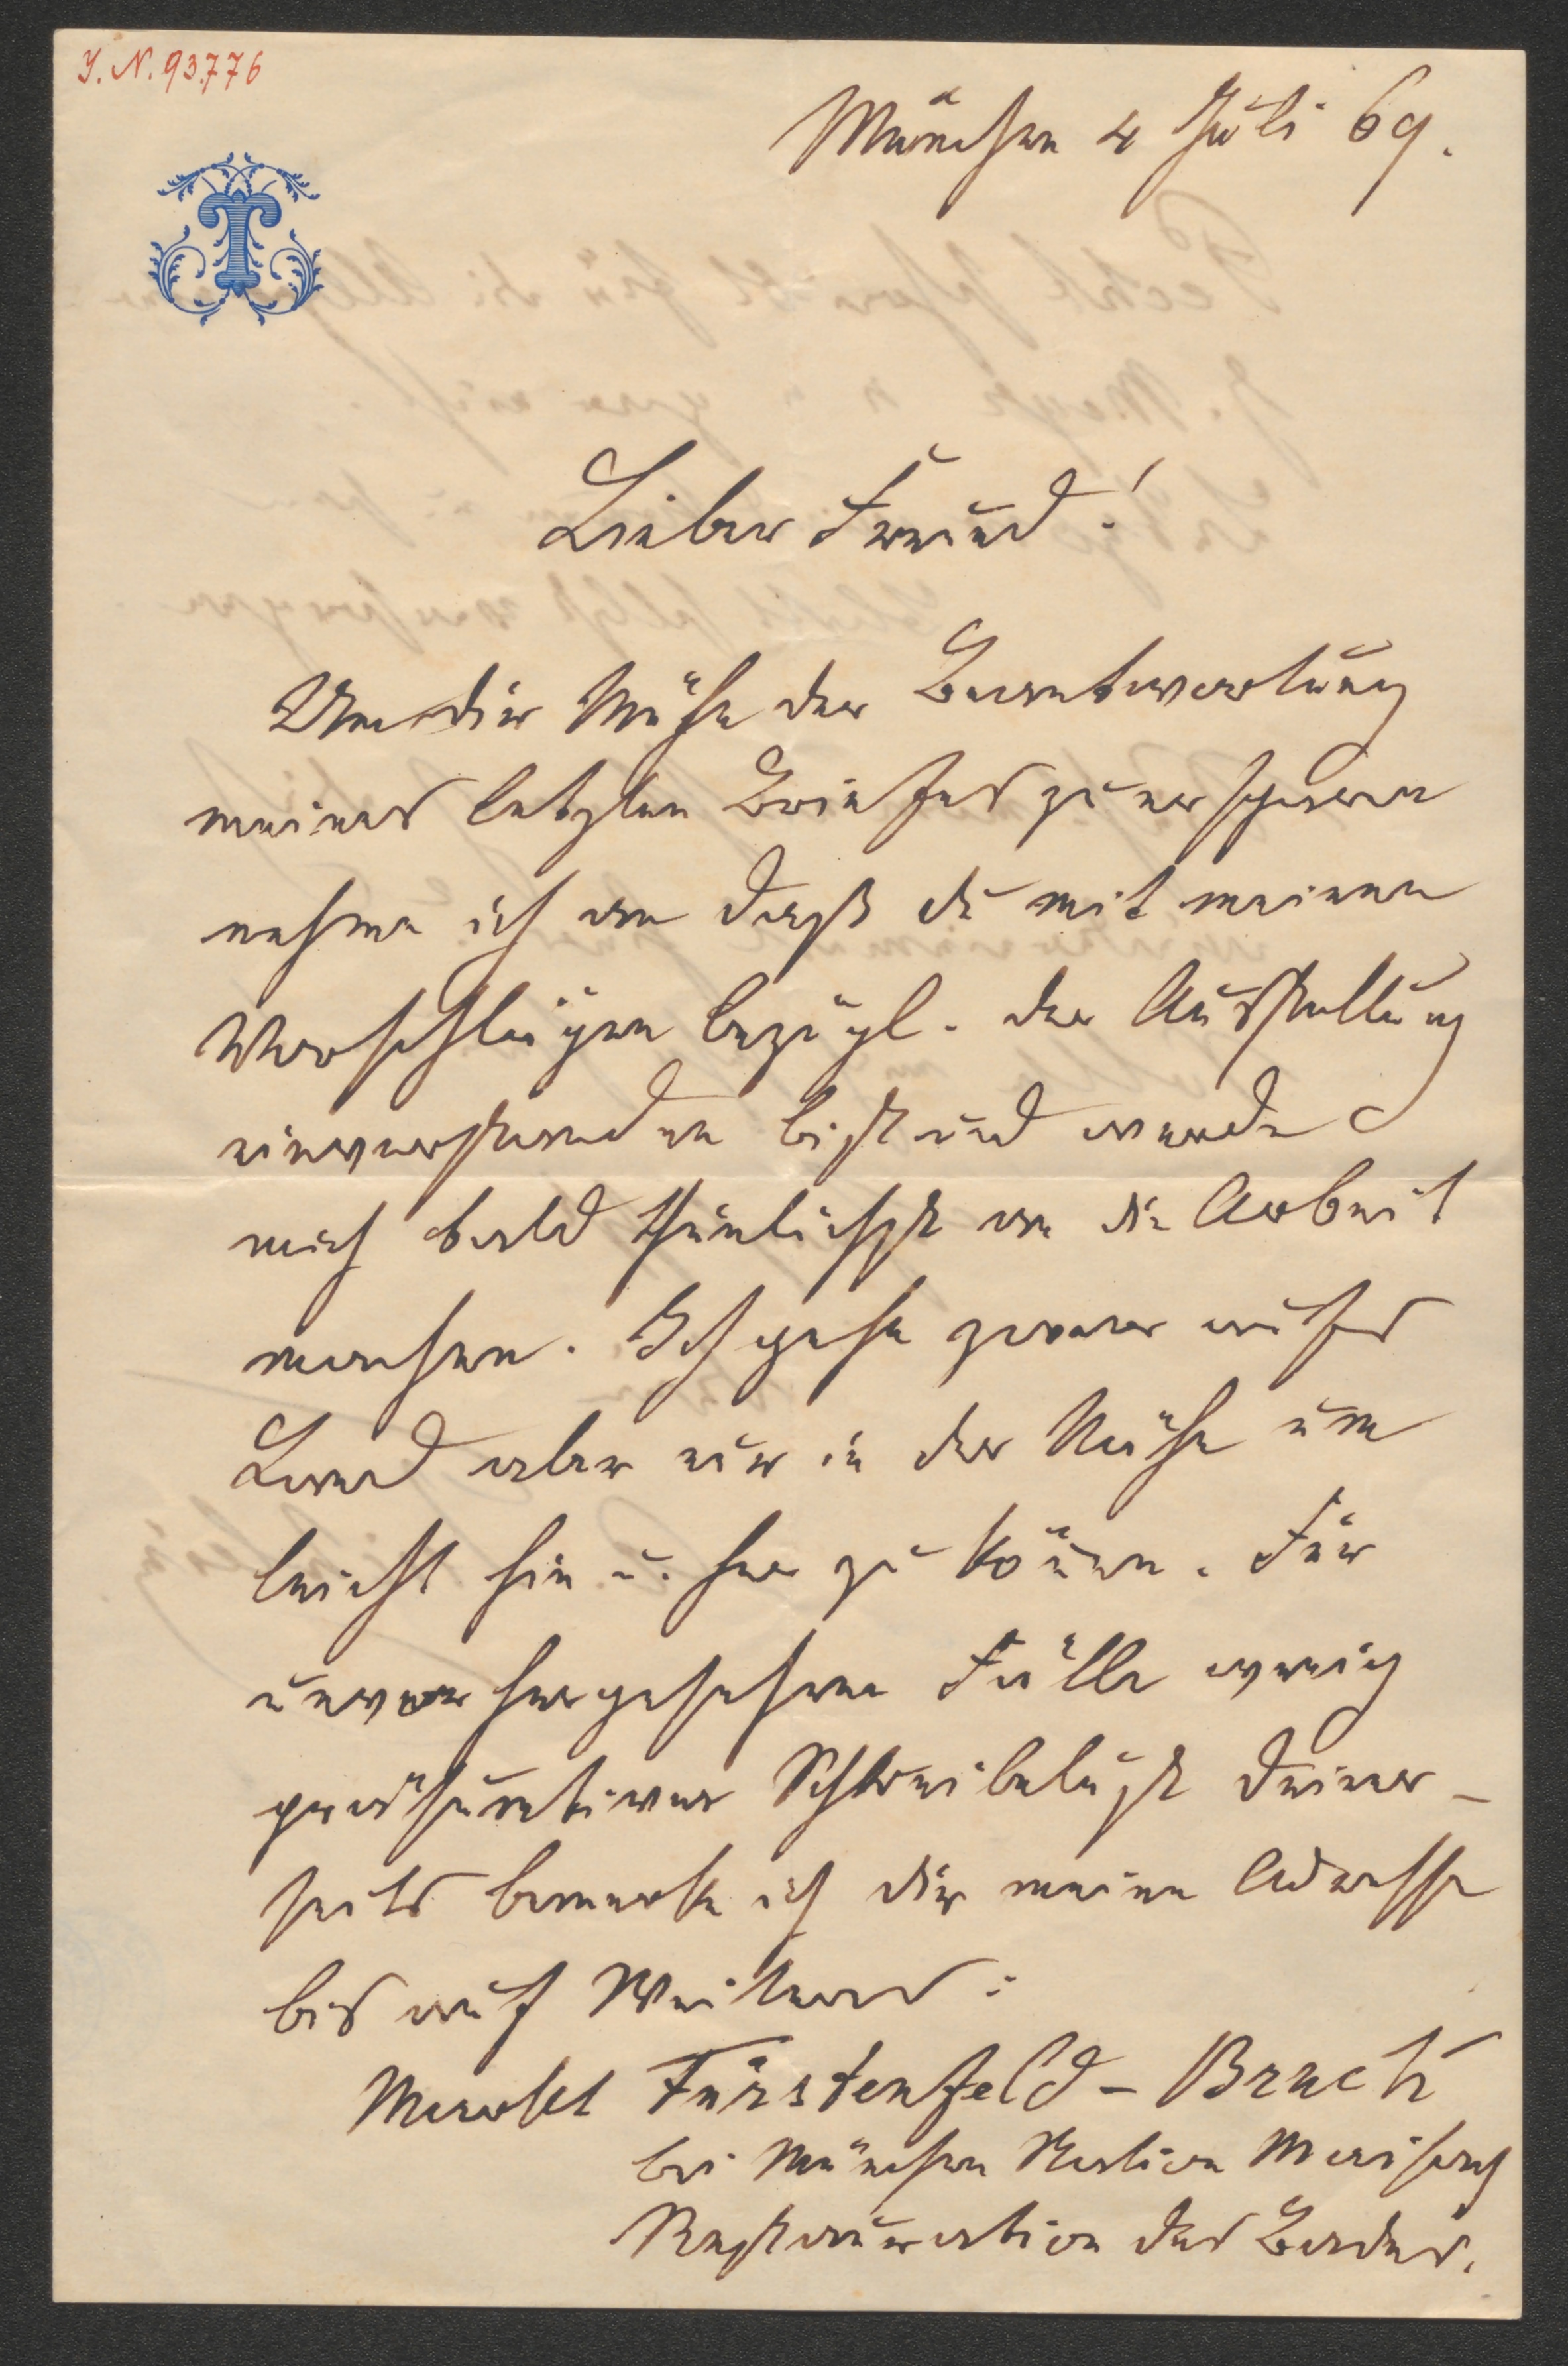 I. N. 93.776
München 4 Juli 69.
Lieber Freund!
Um dir Mühe der Beantwortung
meines letzten Briefes zu ersparen
nehme ich an daß du mit meinen
Vorschlägen bezügl. der Ausstellung
einverstanden bist und werde
mich bald thunlichst an die Arbeit
machen. Ich gehe zwar aufs
Land aber nur in der Nähe um
leicht hin u. her zu können. Für
unvorhergesehene Fälle wenig
präsumtiver Schreibelust deiner-
seits bemerke ich dir meine Adresse
bis auf Weiteres:
Markt Fürstenfeld-Bruck
bei München Station Maisach
Restauration des Bades.